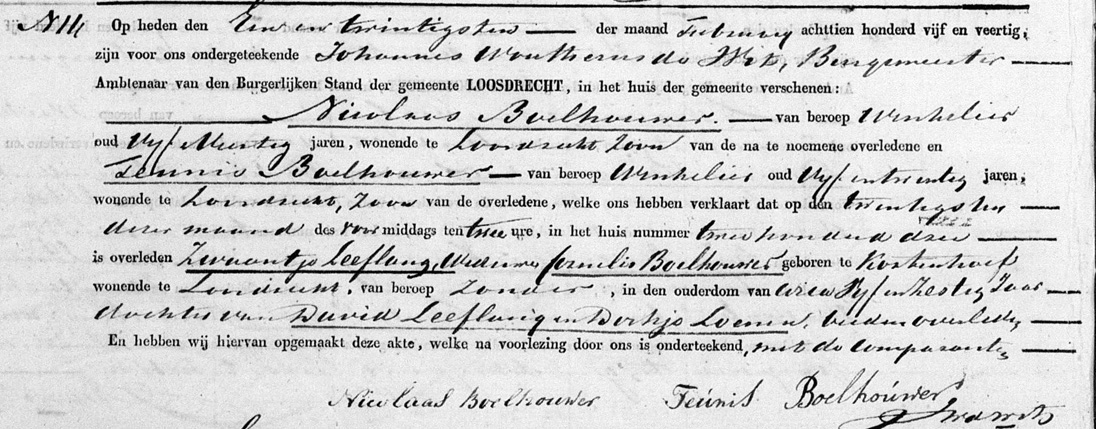 N 14 Op heden den Een en twintigsten der maand February achttien honderd vijf en veertig,
zijn voor ons ondergeteekende Johannes Woutherus de Wet, Burgemeester
Ambtenaar van den Burgerlijken Stand der gemeente LOOSDRECHT, in het huis der gemeente verschenen:
Nicolaas Boelhouwer. van beroep Winkelier
oud Vyf Meertig jaren, wonende te Loosdrecht Zoon van de na te noemene overledene en
Teunis Boelhouwer van beroep Winkelier oud Vyf en twintig jaren,
wonende te Loosdrecht, Zoon van de overledene, welke ons hebben verklaart dat op den twintigsten
dezer maand des voor middags ten twee ure, in het huis nummer twee honderd drie
is overleden Zwaantje Leeflang, Weduwe Cornelis Boelhouwer geboren te Kortenhoef
wonende te Loosdrecht, van beroep Zonder, in den ouderdom van circa Vyf en Zestig Jaar
dochter van David Leeflang en Dirkje Loenen, beiden overleden
En hebben wij hiervan opgemaakt deze akte, welke na voorlezing door ons is onderteekend, met de comparanten
Nicolaas Boelhouwer Teúnis Boelhoúwer